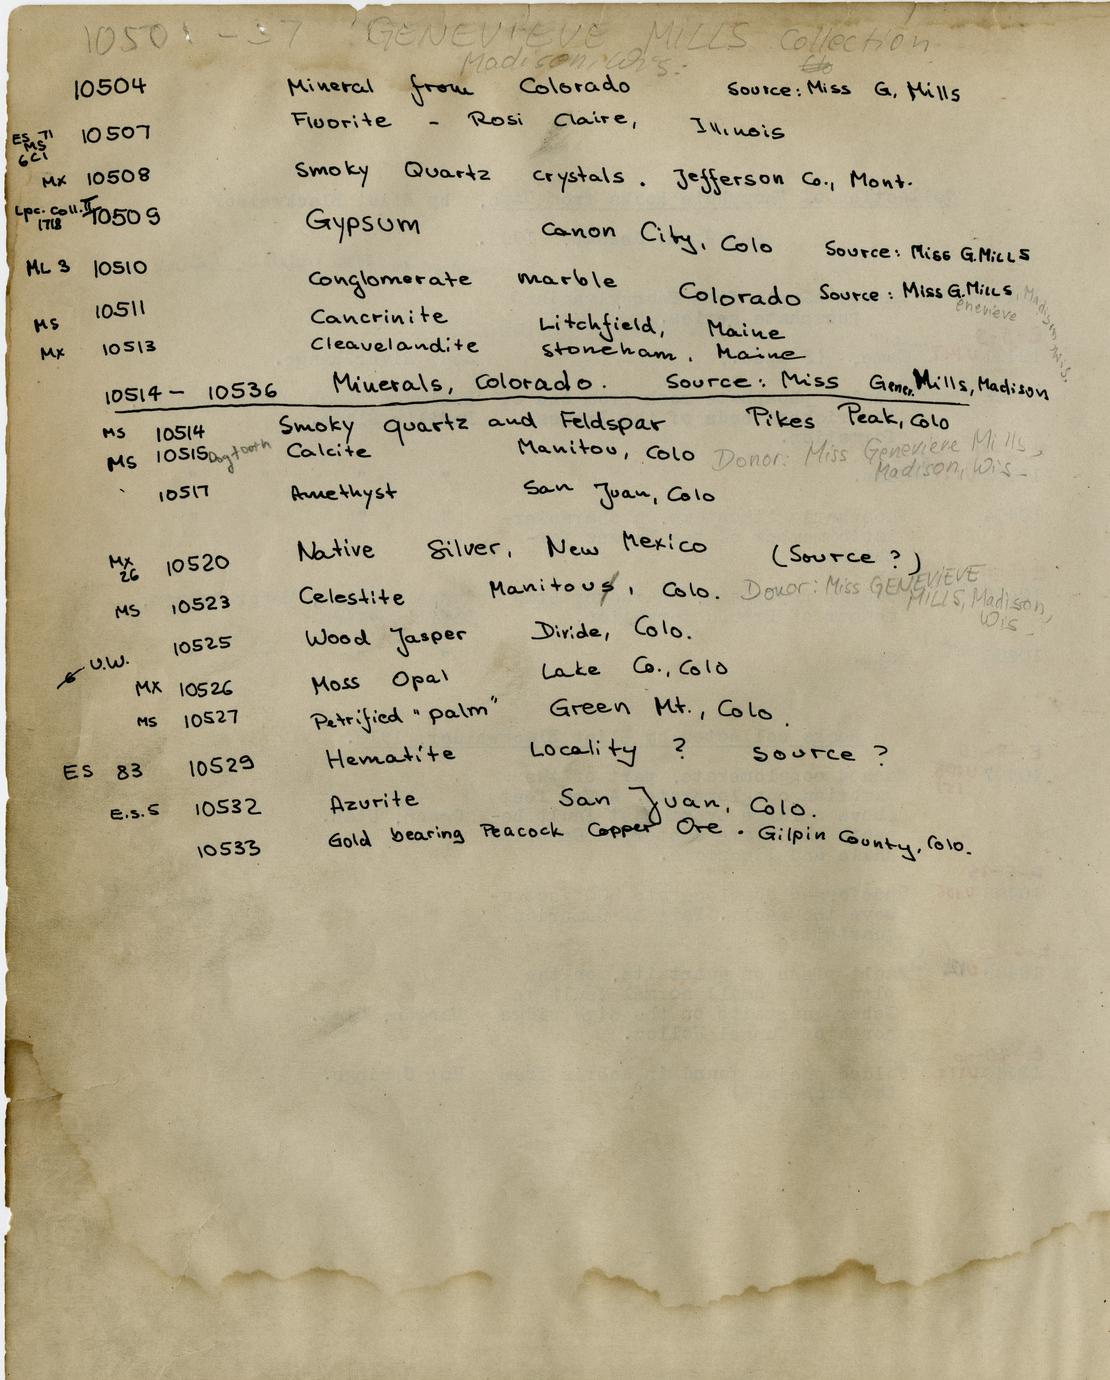 10501 - 37 GENEVIEVE MILLS Collection
Madison, Wis.
10504 Mineral from Colorado Source: Miss G. Mills
ES 71 MS 6C1 10507 Fluorite - Rosi Claire, Illinois
MX 10508 Smoky Quartz crystals. Jefferson Co., Mont.
Lpc. Coll. II 1718 10509 Gypsum Canon City, Colo Source: Miss G. Mills
ML 3 10510 Conglomerate marble Colorado Source: Miss G. Mills, Madison Wis.
enevieve
MS 10511 Cancrinite Litchfield, Maine
MX 10513 Cleavelandite Stoneham, Maine
10514 - 10536 Minerals, Colorado. Source: Miss Genev. Mills, Madison
MS 10514 Smoky quartz and Feldspar Pikes Peak, Colo
MS 10515 Dogtooth Calcite Manitou, Colo Donor: Miss Genevieve Mills,
Madison, Wis.
10517 Amethyst San Juan, Colo
MX 26 10520 Native Silver, New Mexico (Source ?)
MS 10523 Celestite Manitous, Colo. Donor: Miss GENEVIEVE
MILLS, Madison,
Wis
10525 Wood Jasper Divide, Colo.
U.W.
MX 10526 Moss Opal Lake Co., Colo
MS 10527 Petrified "palm" Green Mt., Colo.
ES 83 10529 Hematite Locality ? Source ?
E.S.5 10532 Azurite San Juan, Colo.
10533 Gold bearing Peacock Copper Ore. Gilpin County, Colo.